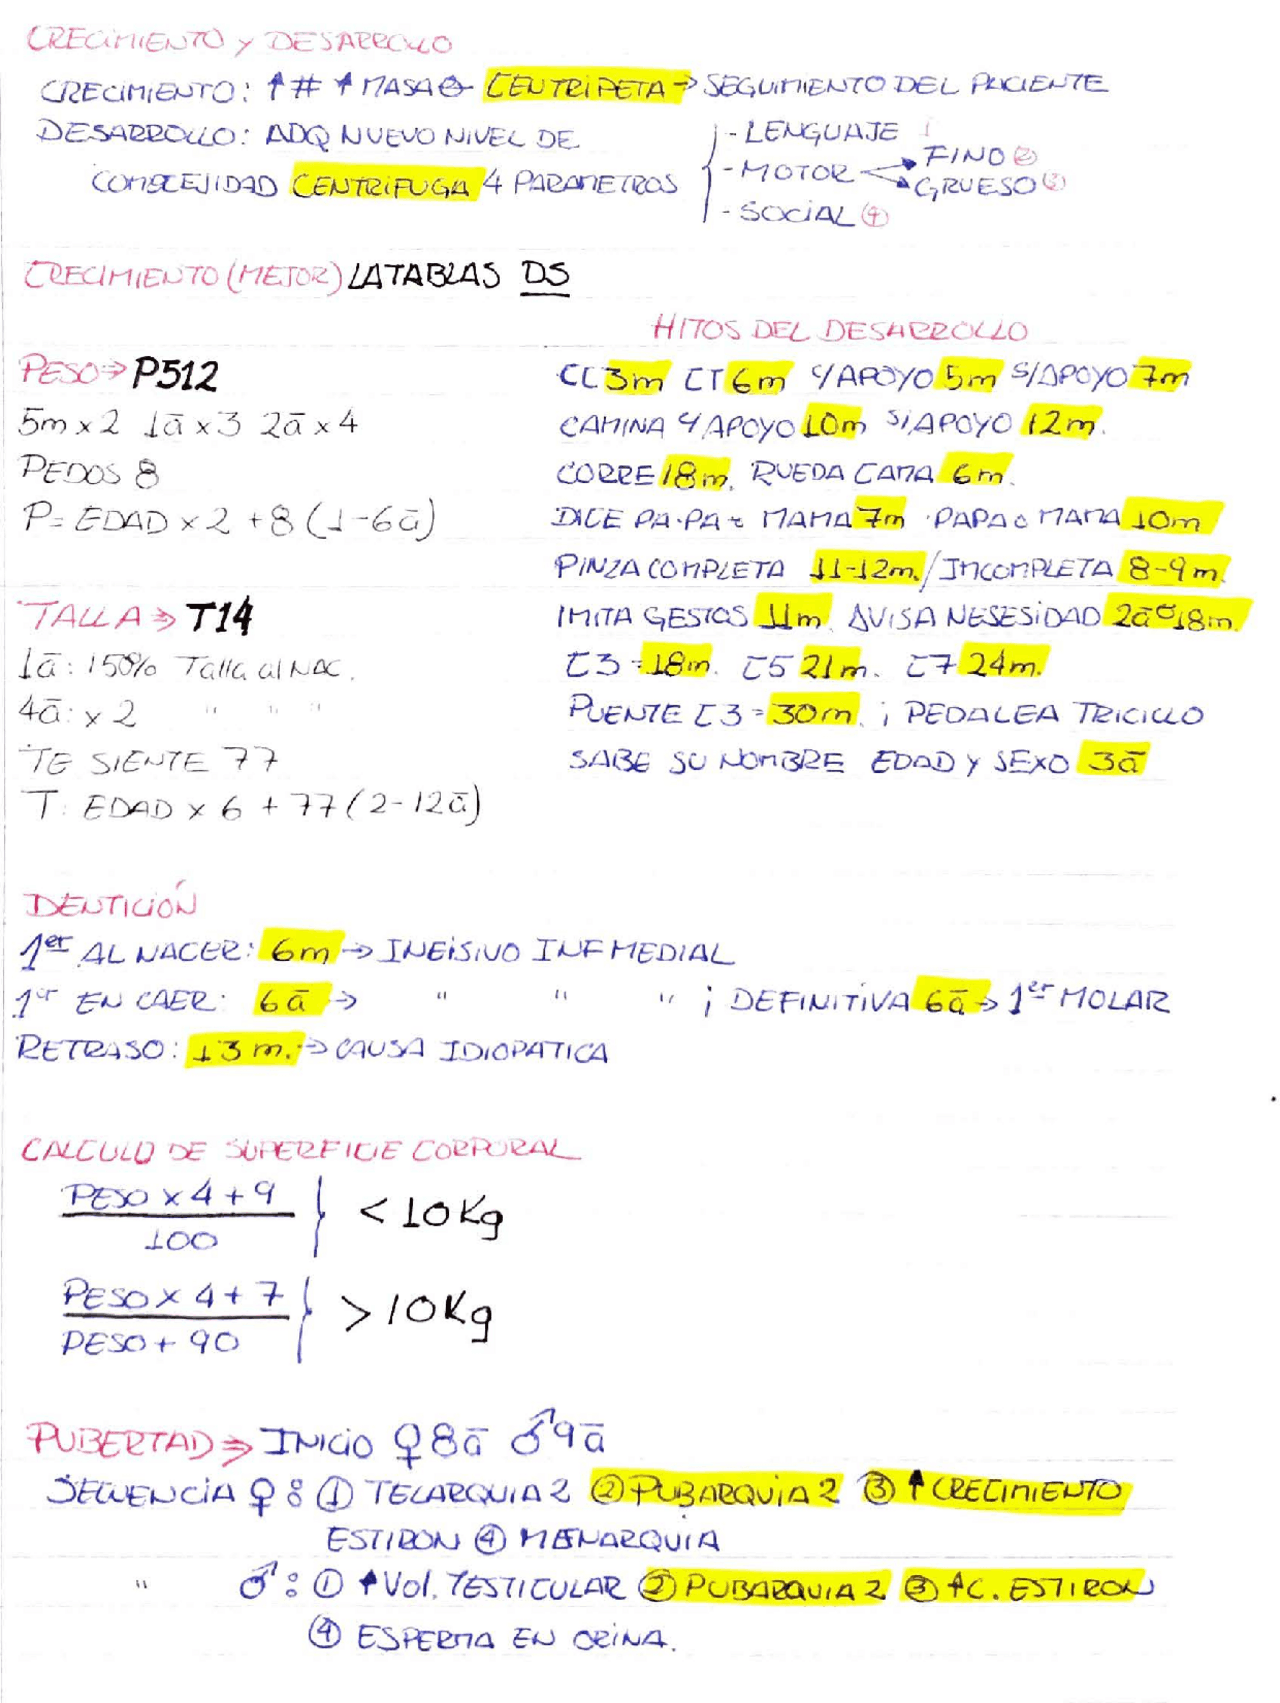 CRECIMIENTO y DESARROLLO
CRECIMIENTO: ↑ # ↑ MASA CENTRIPETA → SEGUIMIENTO DEL PACIENTE
DESARROLLO: ADQ NUEVO NIVEL DE
COMPLEJIDAD CENTRIFUGA 4 PARAMETROS
- LENGUAJE 1
- MOTOR
FINO ②
GRUESO ③
- SOCIAL ④
CRECIMIENTO (MEJOR) LATABLAS DS
PESO ⇒ P512
5m x 2 1ā x 3 2ā x 4
PEDOS 8
P= EDAD x 2 + 8 (1-6ā)
TALLA ⇒ T14
1ā: 150% Talla al NAC.
4ā: x 2 " " "
TE SIENTE 77
T: EDAD x 6 + 77 (2-12ā)
HITOS DEL DESARROLLO
CC 3m CT 6m C/APOYO 5m S/APOYO 7m
CAMINA C/APOYO 10m S/APOYO 12m.
CORRE 18m. RUEDA CAMA 6m.
DICE PA-PA MAMA 7m PAPA o MAMA 10m
PINZA COMPLETA 11-12m. / INCOMPLETA 8-9m.
IMITA GESTOS 11m. AVISA NESESIDAD 2ā o 18m.
C3 = 18m. C5 21m. C7 24m.
PUENTE C3 = 30m. ; PEDALEA TRICICLO
SABE SU NOMBRE EDAD y SEXO 3ā
DENTICIÓN
1er AL NACER: 6m → INCISIVO INF MEDIAL
1er EN CAER: 6ā → " " " ; DEFINITIVA 6ā → 1er MOLAR
RETRASO: 13 m. → CAUSA IDIOPATICA
CALCULO DE SUPERFICIE CORPORAL
PESO x 4 + 9
100
} < 10 Kg
PESO x 4 + 7
PESO + 90
} > 10 Kg
PUBERTAD ⇒ INICIO ♀ 8ā ♂ 9ā
SECUENCIA ♀: ① TELARQUIA 2 ② PUBARQUIA 2 ③ ↑ CRECIMIENTO
ESTIRON ④ MENARQUIA
" ♂: ① ↑ Vol. TESTICULAR ② PUBARQUIA 2 ③ ↑C. ESTIRON
④ ESPERMA EN ORINA.